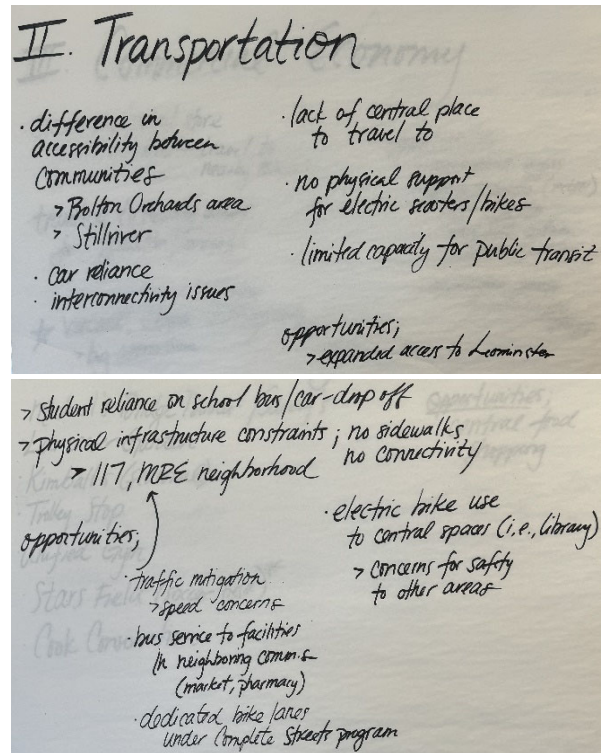 II. Transportation
· difference in
accessibility between
communities
> Bolton Orchards area
> Stillriver
· car reliance
· interconnectivity issues
· lack of central place
to travel to
· no physical support
for electric scooters/bikes
· limited capacity for public transit
opportunities;
> expanded access to Leominster
> student reliance on school bus/car-drop off
> physical infrastructure constraints ; no sidewalks,
no connectivity
> 117, MRE neighborhood
opportunities;
· traffic mitigation
> speed concerns
· bus service to facilities
in neighboring comm.s
(market, pharmacy)
· dedicated bike lanes
under Complete Streets program
· electric bike use
to central spaces (i.e., library)
> concerns for safety
to other areas